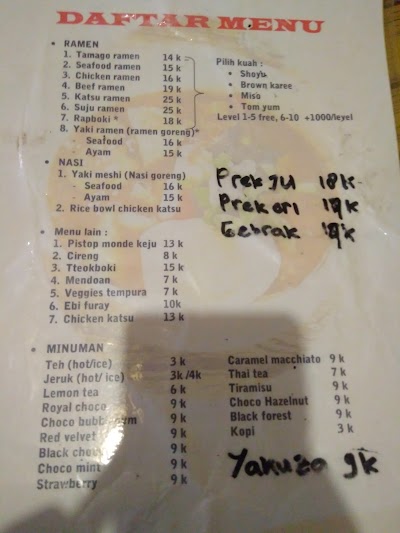 DAFTAR MENU
• RAMEN
1. Tamago ramen 14 k
2. Seafood ramen 15 k
3. Chicken ramen 16 k
4. Beef ramen 19 k
5. Katsu ramen 25 k
6. Suju ramen 25 k
7. Rapboki * 18 k
8. Yaki ramen (ramen goreng)*
- Seafood 16 k
- Ayam 15 k
Pilih kuah :
• Shoyu
• Brown karee
• Miso
• Tom yum
Level 1-5 free, 6-10 +1000/level
• NASI
1. Yaki meshi (Nasi goreng)
- Seafood 16 k
- Ayam 15 k
2. Rice bowl chicken katsu
Prek ju 18k
Prek ori
Gebrak
• Menu lain :
1. Pistop monde keju 13 k
2. Cireng 8 k
3. Tteokboki 15 k
4. Mendoan 7 k
5. Veggies tempura 7 k
6. Ebi furay 10k
7. Chicken katsu 13 k
• MINUMAN
Teh (hot/ice) 3 k
Jeruk (hot/ ice) 3k /4k
Lemon tea 6 k
Royal choco 9 k
Choco bubblegum 9 k
Red velvet 9 k
Black 9 k
Choco mint 9 k
Strawberry 9 k
Caramel macchiato 9 k
Thai tea 7 k
Tiramisu 9 k
Choco Hazelnut 9 k
Black forest 9 k
Kopi 3 k
Yakuza 9k